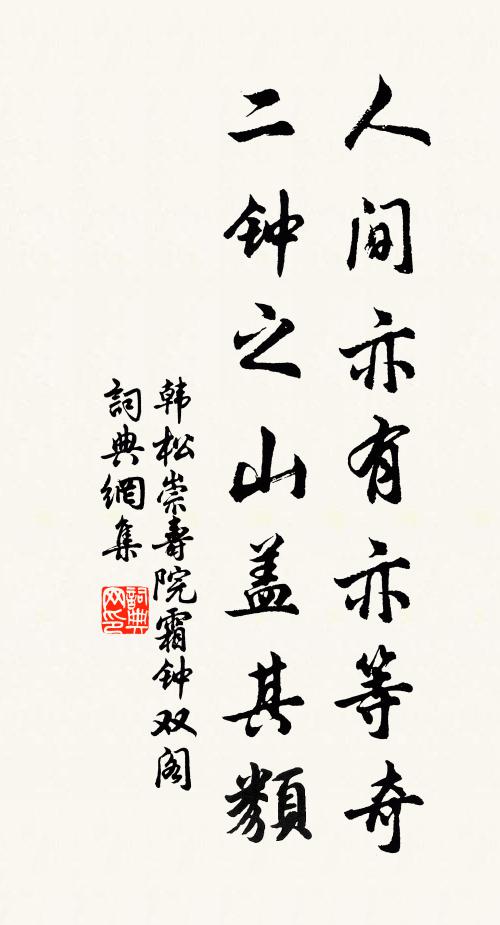 人间亦有亦等奇
二钟之山盖其類
韩松崇寿院霜钟双阁
詞典網集
詞典网印